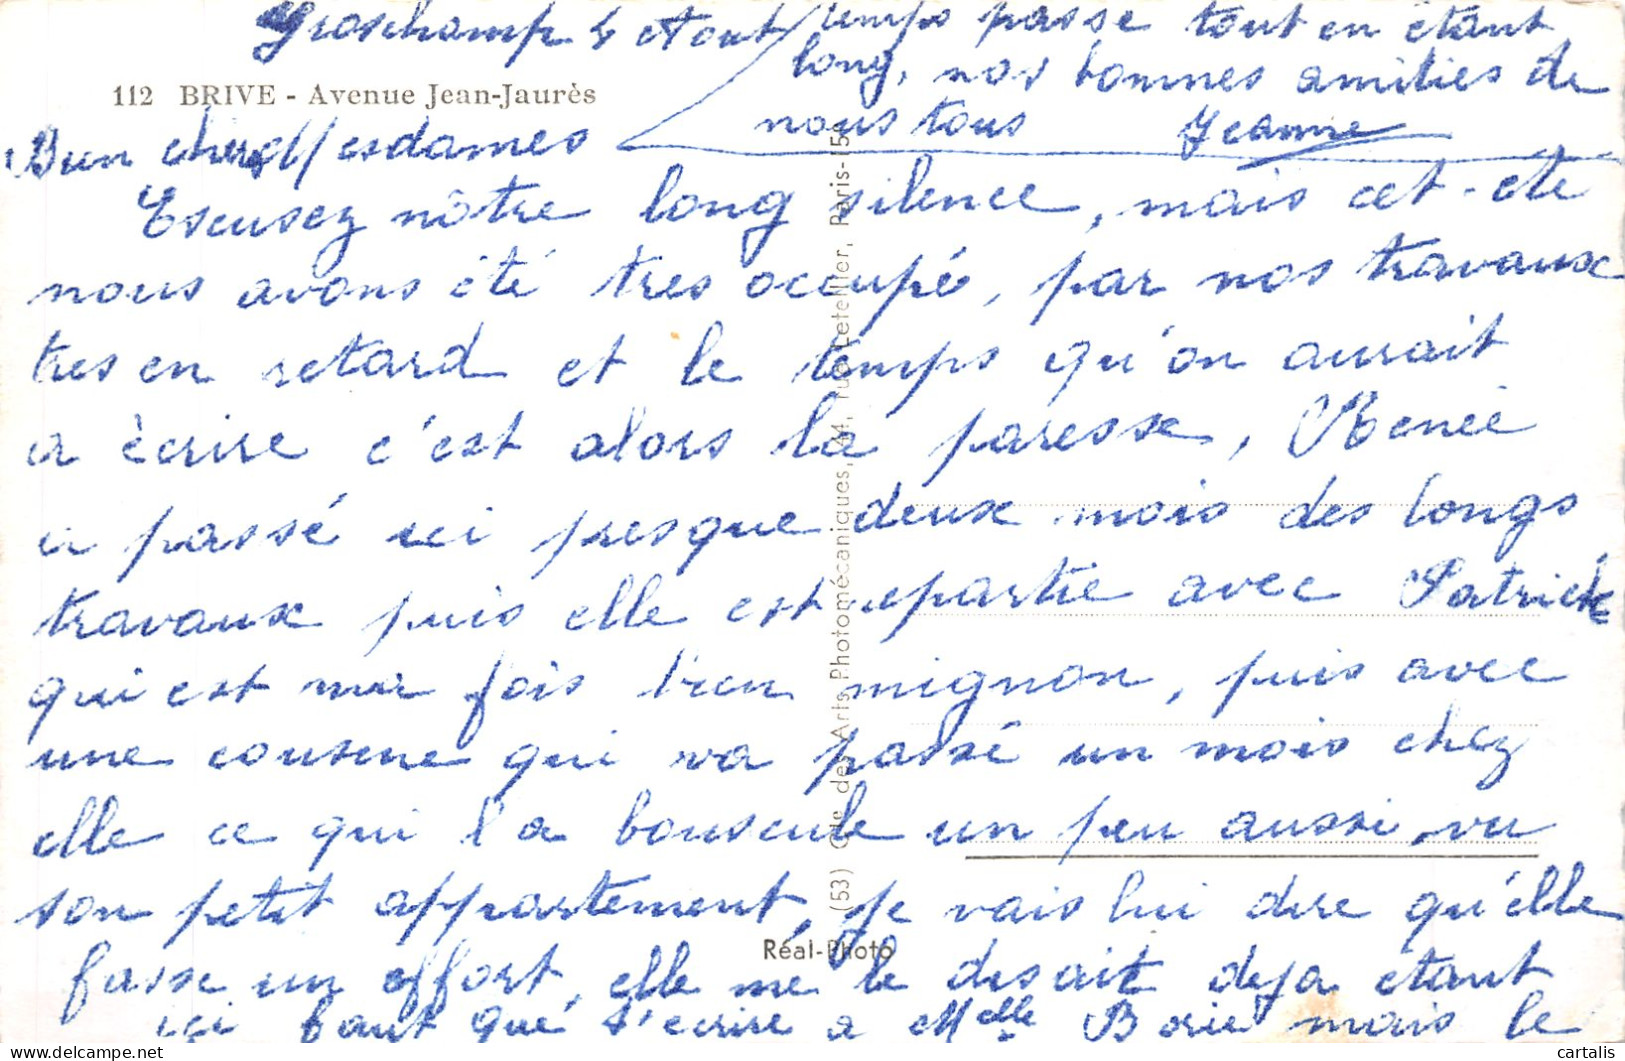 Groschamp 4 Aout
112 BRIVE - Avenue Jean-Jaurès
Bien cheres Mesdames
Escusez nôtre long silence, mais cet-été
nous avons été tres occupé, par nos travaux
tres en retard et le temps qu'on aurait
a écrire c'est alors la paresse, Renée
a passé ici presque deux mois des longs
travaux puis elle est repartie avec Patrick
qui est ma fois bien mignon, puis avec
une cousine qui va passé un mois chez
elle ce qui l'a bouscule un peu aussi, vu
son petit appartement, je vais lui dire qu'elle
fasse un effort, elle me le disait deja étant
ici faut que j'ecrire a Melle Borie mais le
temps passe tout en étant
long, nos bonnes amities de
nous tous Jeanne
(53) Cie des Arts Photomécaniques, 44, rue Letellier, Paris-15e
Réal-Photo
cartalis